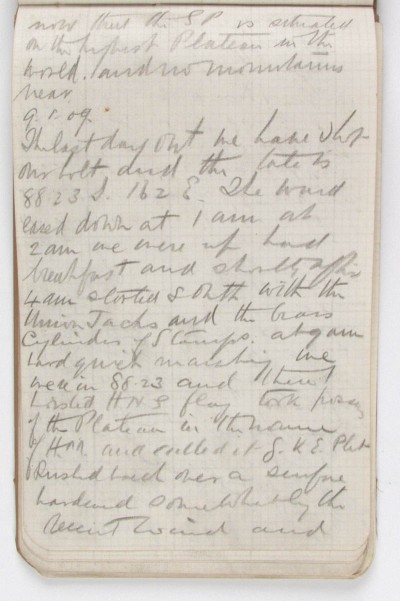 now that the S P is situated
on the highest Plateau in the
world. and no mountains
near
9.1.09.
The last day out we have shot
our bolt and the tale is
88.23 S. 162 E. The wind
eased down at 1 am at
2 am we were up had
breakfast and shortly after
4 am started South with the
Union Jacks and the brass
Cylinder of Stamps. at 9 am
hard quick marching we
were in 88.23 and there
hoisted H M S flag took
of the Plateau in the name
of H.M. and called it K. E. Plat
Rushed back over a surface
hardened somewhat by the
recent wind and